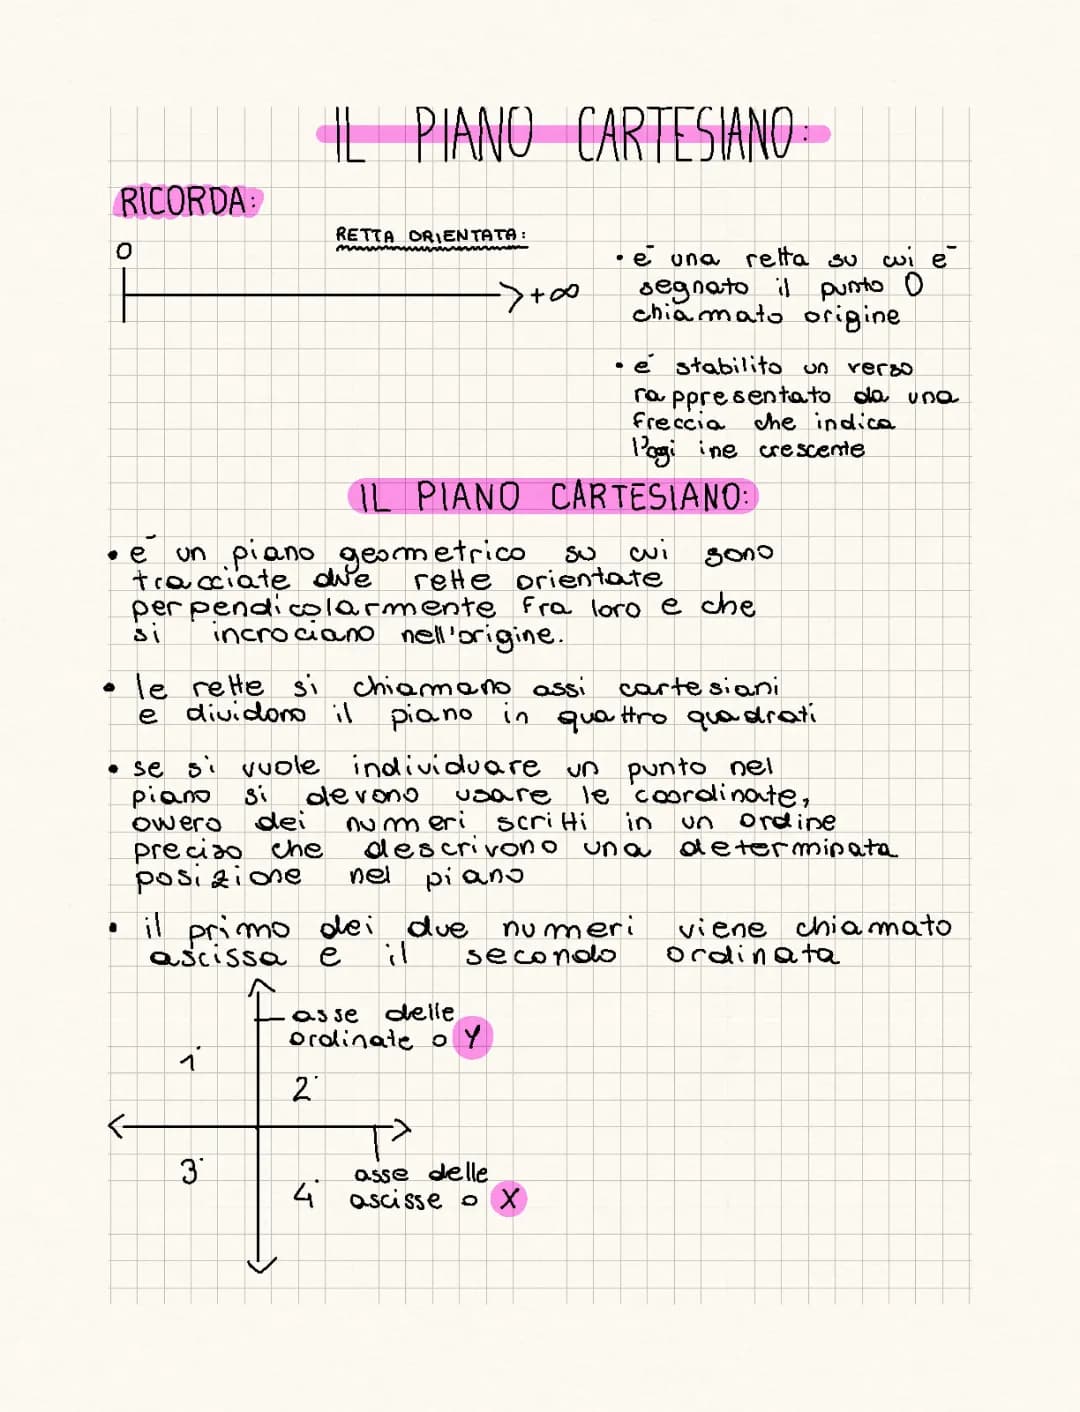 IL PIANO CARTESIANO:
RICORDA:
RETTA ORIENTATA:
O
+∞
• é una retta su cui é
segnato il punto O
chiamato origine
• é stabilito un verso
rappresentato da una
freccia che indica
l'ogi ine crescente
IL PIANO CARTESIANO:
• é un piano geometrico su cui sono
tracciate due rette orientate
perpendicolarmente fra loro e che
si incrociano nell'origine.
• le rette si chiamano assi cartesiani
e dividono il piano in quattro quadrati
• se si vuole individuare un punto nel
piano si devono usare le coordinate,
ovvero dei numeri scritti in un ordine
preciso che descrivono una determinata
posizione nel piano
• il primo dei due numeri viene chiamato
ascissa e il secondo ordinata
asse delle
ordinate o Y
1°
2°
3°
4°
asse delle
ascisse o X